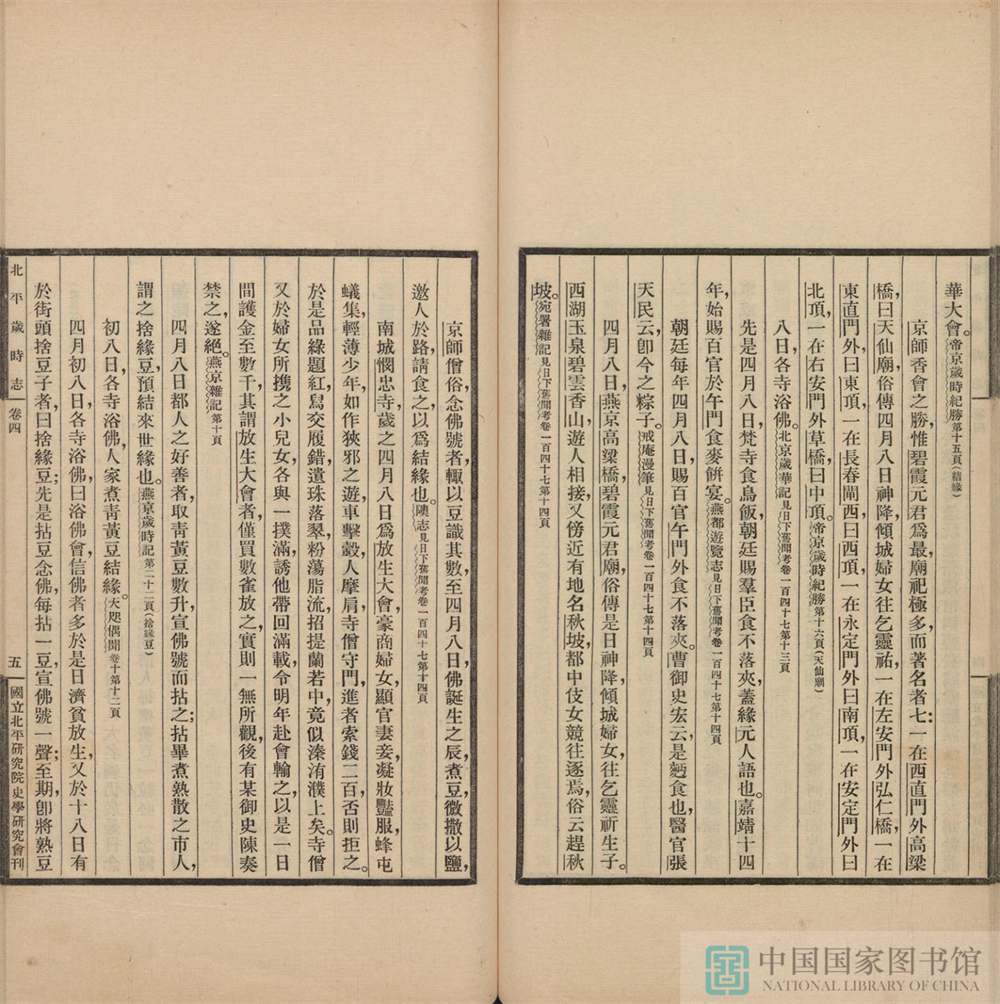 華大會。帝京歲時紀勝第十五頁(結緣)
京師香會之勝,惟碧霞元君爲最,廟祀極多,而著名者七:一在西直門外高梁
橋,曰天仙廟,俗傳四月八日神降,傾城婦女往乞靈祐,一在左安門外弘仁橋,一在
東直門外,曰東頂,一在長春閘西,曰西頂,一在永定門外,曰南頂,一在安定門外,曰
北頂,一在右安門外草橋,曰中頂。帝京歲時紀勝第十六頁(天仙廟)
八日,各寺浴佛。北京歲華記見日下舊聞考卷一百四十七第十三頁
先是四月八日,梵寺食烏飯,朝廷賜羣臣食不落夾,蓋緣元人語也。嘉靖十四
年,始賜百官於午門食麥餅宴。燕都遊覽志見日下舊聞考卷一百四十七第十四頁
朝廷每年四月八日,賜百官午門外食不落夾。曹御史宏云,是麪食也,醫官張
天民云,卽今之粽子。戒庵漫筆見日下舊聞考卷一百四十七第十四頁
四月八日,燕京高梁橋,碧霞元君廟,俗傳是日神降,傾城婦女,往乞靈祈生子。
西湖玉泉碧雲香山,遊人相接,又傍近有地名秋坡,都中伎女競往逐焉,俗云趕秋
坡。宛署雜記見日下舊聞考卷一百四十七第十四頁
京師僧俗,念佛號者,輒以豆識其數,至四月八日,佛誕生之辰,煮豆微撒以鹽,
邀人於路請食之,以爲結緣也。隩志見日下舊聞考卷一百四十七第十四頁
南城憫忠寺,歲之四月八日,爲放生大會,豪商婦女,顯官妻妾,凝妝豔服,蜂屯
蟻集,輕薄少年,如作狹邪之遊,車擊轂,人摩肩,寺僧守門,進者索錢二百,否則拒之。
於是品綠題紅,舄交履錯,遺珠落翠,粉蕩脂流,招提蘭若中,竟似溱洧濮上矣。寺僧
又於婦女所攜之小兒女,各與一撲滿,誘他帶回滿載,令明年赴會輸之,以是一日
間護金至數千,其謂放生大會者,僅買數雀放之,實則一無所觀,後有某御史陳奏
禁之,遂絕。燕京雜記第十頁
四月八日,都人之好善者,取青黃豆數升,宣佛號而拈之;拈畢煮熟,散之市人,
謂之捨緣豆,預結來世緣也。燕京歲時記第二十二頁(捨緣豆)
初八日,各寺浴佛,人家煮青黃豆結緣。天咫偶聞卷十第十二頁
四月初八日,各寺浴佛,曰浴佛會,信佛者多於是日濟貧放生,又於十八日有
於街頭捨豆子者,曰捨緣豆,先是拈豆念佛,每拈一豆,宣佛號一聲;至期,卽將熟豆
北平歲時志 卷四 五 國立北平研究院史學研究會刊
中国国家图书馆
NATIONAL LIBRARY OF CHINA